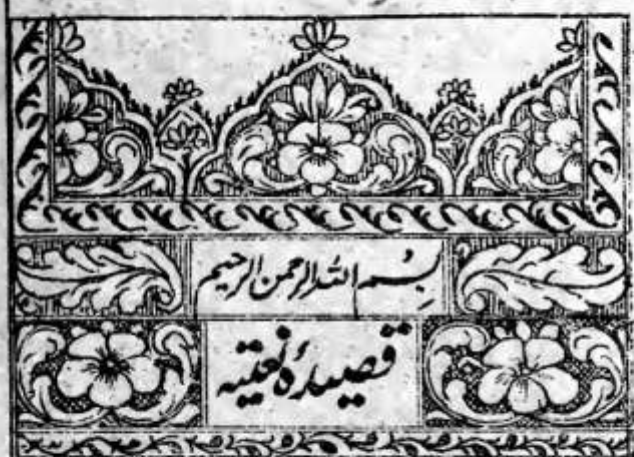 بسم اللہ الرحمن الرحیم
قصیدۂ نعتیہ